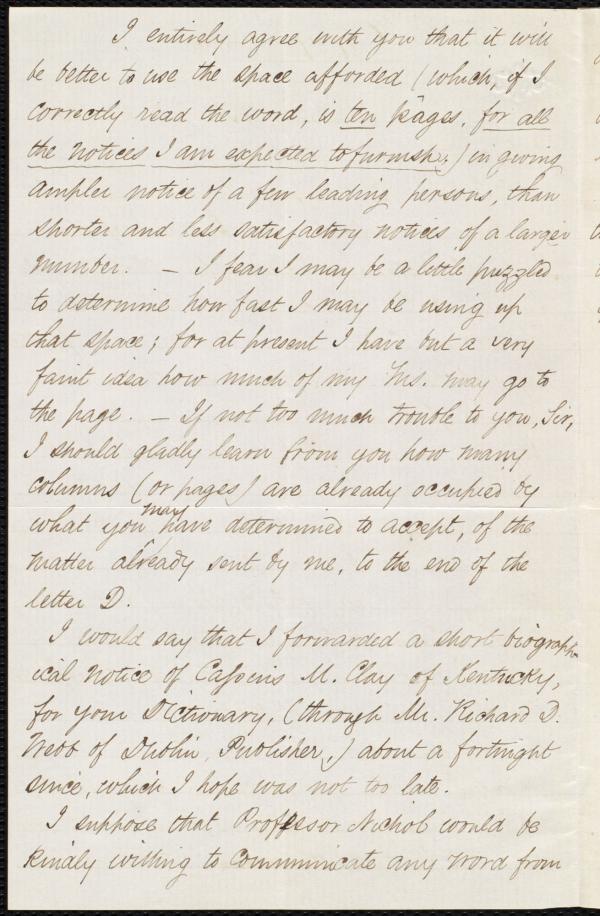 I entirely agree with you that it will
be better to use the space afforded (which, if I
correctly read the word, is ten pages, for all
the notices I am expected to furnish,) in giving
ampler notice of a few leading persons, than
shorter and less satisfactory notices of a larger
number. — I fear I may be a little puzzled
to determine how fast I may be using up
that space; for at present I have but a very
faint idea how much of my Ms. may go to
the page. — If not too much trouble to you, Sir,
I should gladly learn from you how many
columns (or pages) are already occupied by
what you may have determined to accept, of the
matter already sent by me, to the end of the
letter D.
I would say that I forwarded a short biograph-
ical notice of Cassius M. Clay of Kentucky,
for your Dictionary, (through Mr. Richard D.
Webb of Dublin, Publisher,) about a fortnight
since, which I hope was not too late.
I suppose that Professor Nichol would be
kindly willing to communicate any word from